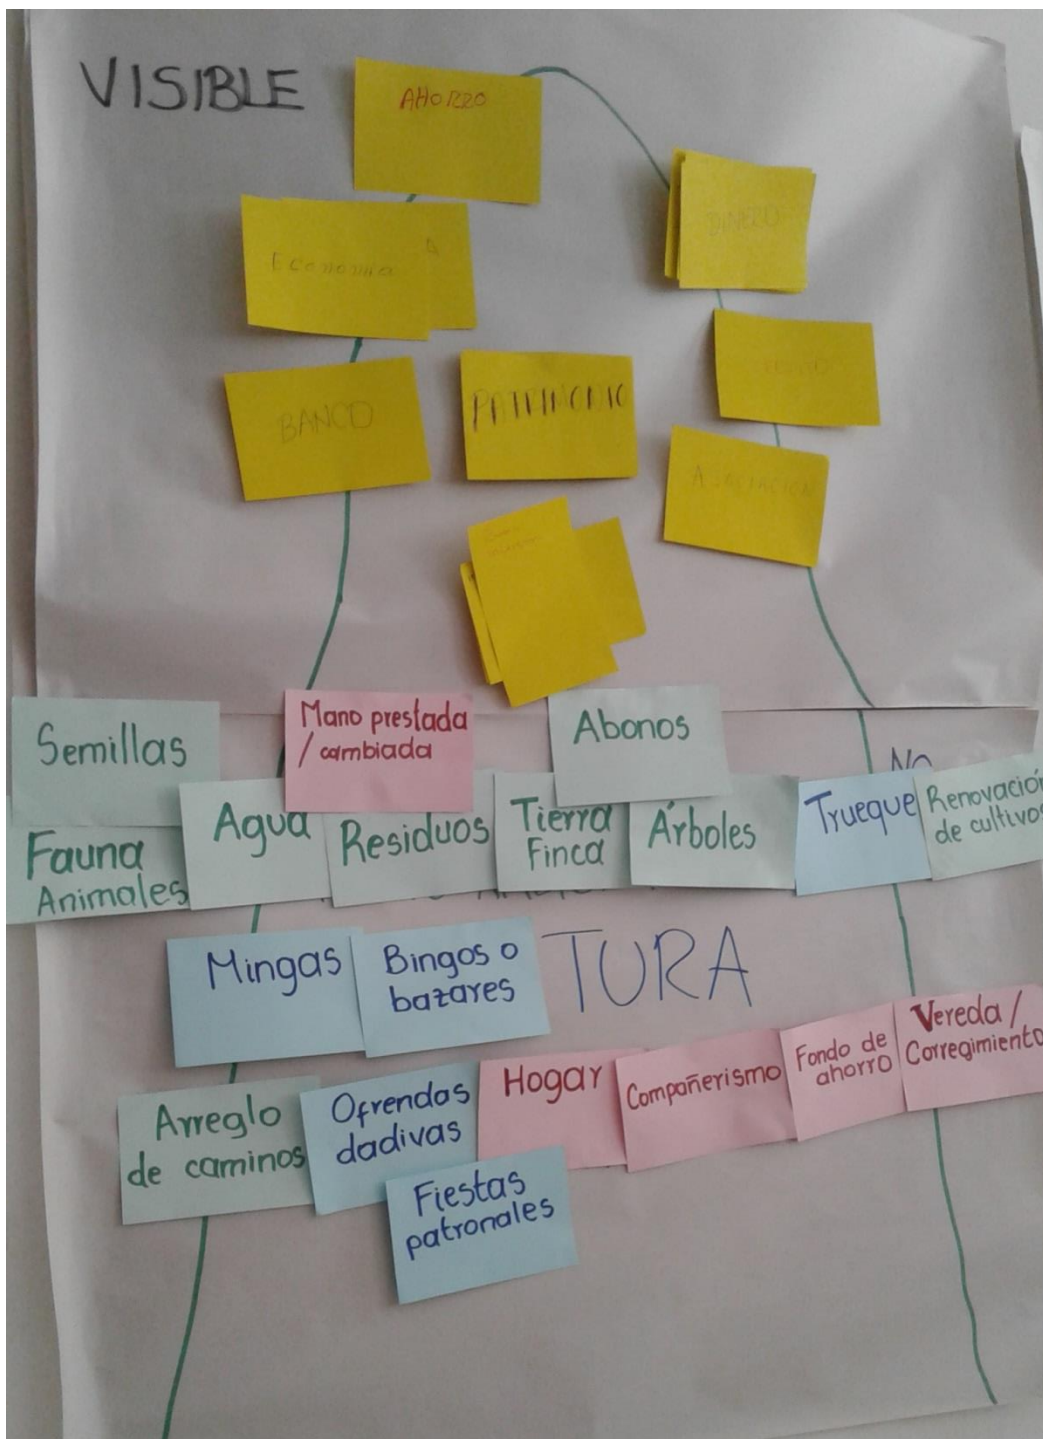 VISIBLE
AHORRO
DINERO
Economia
BANCO
PATRIMONIO
ASOCIACION
Semillas
Mano prestada
/ cambiada
Abonos
No
Fauna
Animales
Agua
Residuos
Tierra
Finca
Árboles
Trueque
Renovación
de cultivos
Mingas
Bingos o
bazares
TURA
Arreglo
de caminos
Ofrendas
dadivas
Hogar
Compañerismo
Fondo de
ahorro
Vereda /
Corregimiento
Fiestas
patronales